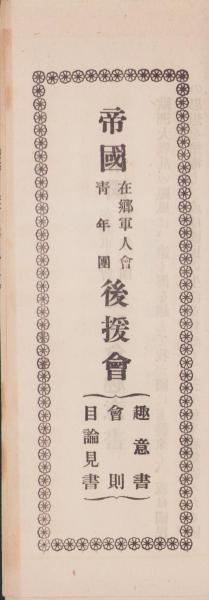 帝國
在鄉軍人會
青年團
後援會
趣意書
會則
目論見書